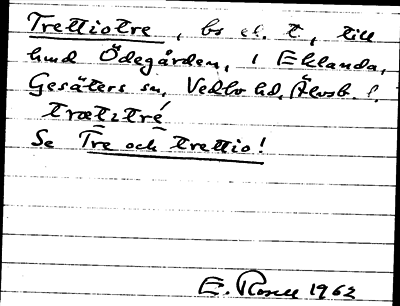 Trettiotre, bs el. t, till
hmd Ödegården, i Eklanda,
Gesäters sn, Vedbo hd, Älvsb. l.
trætitré
Se Tre och trettio!
E. Rosell 1962